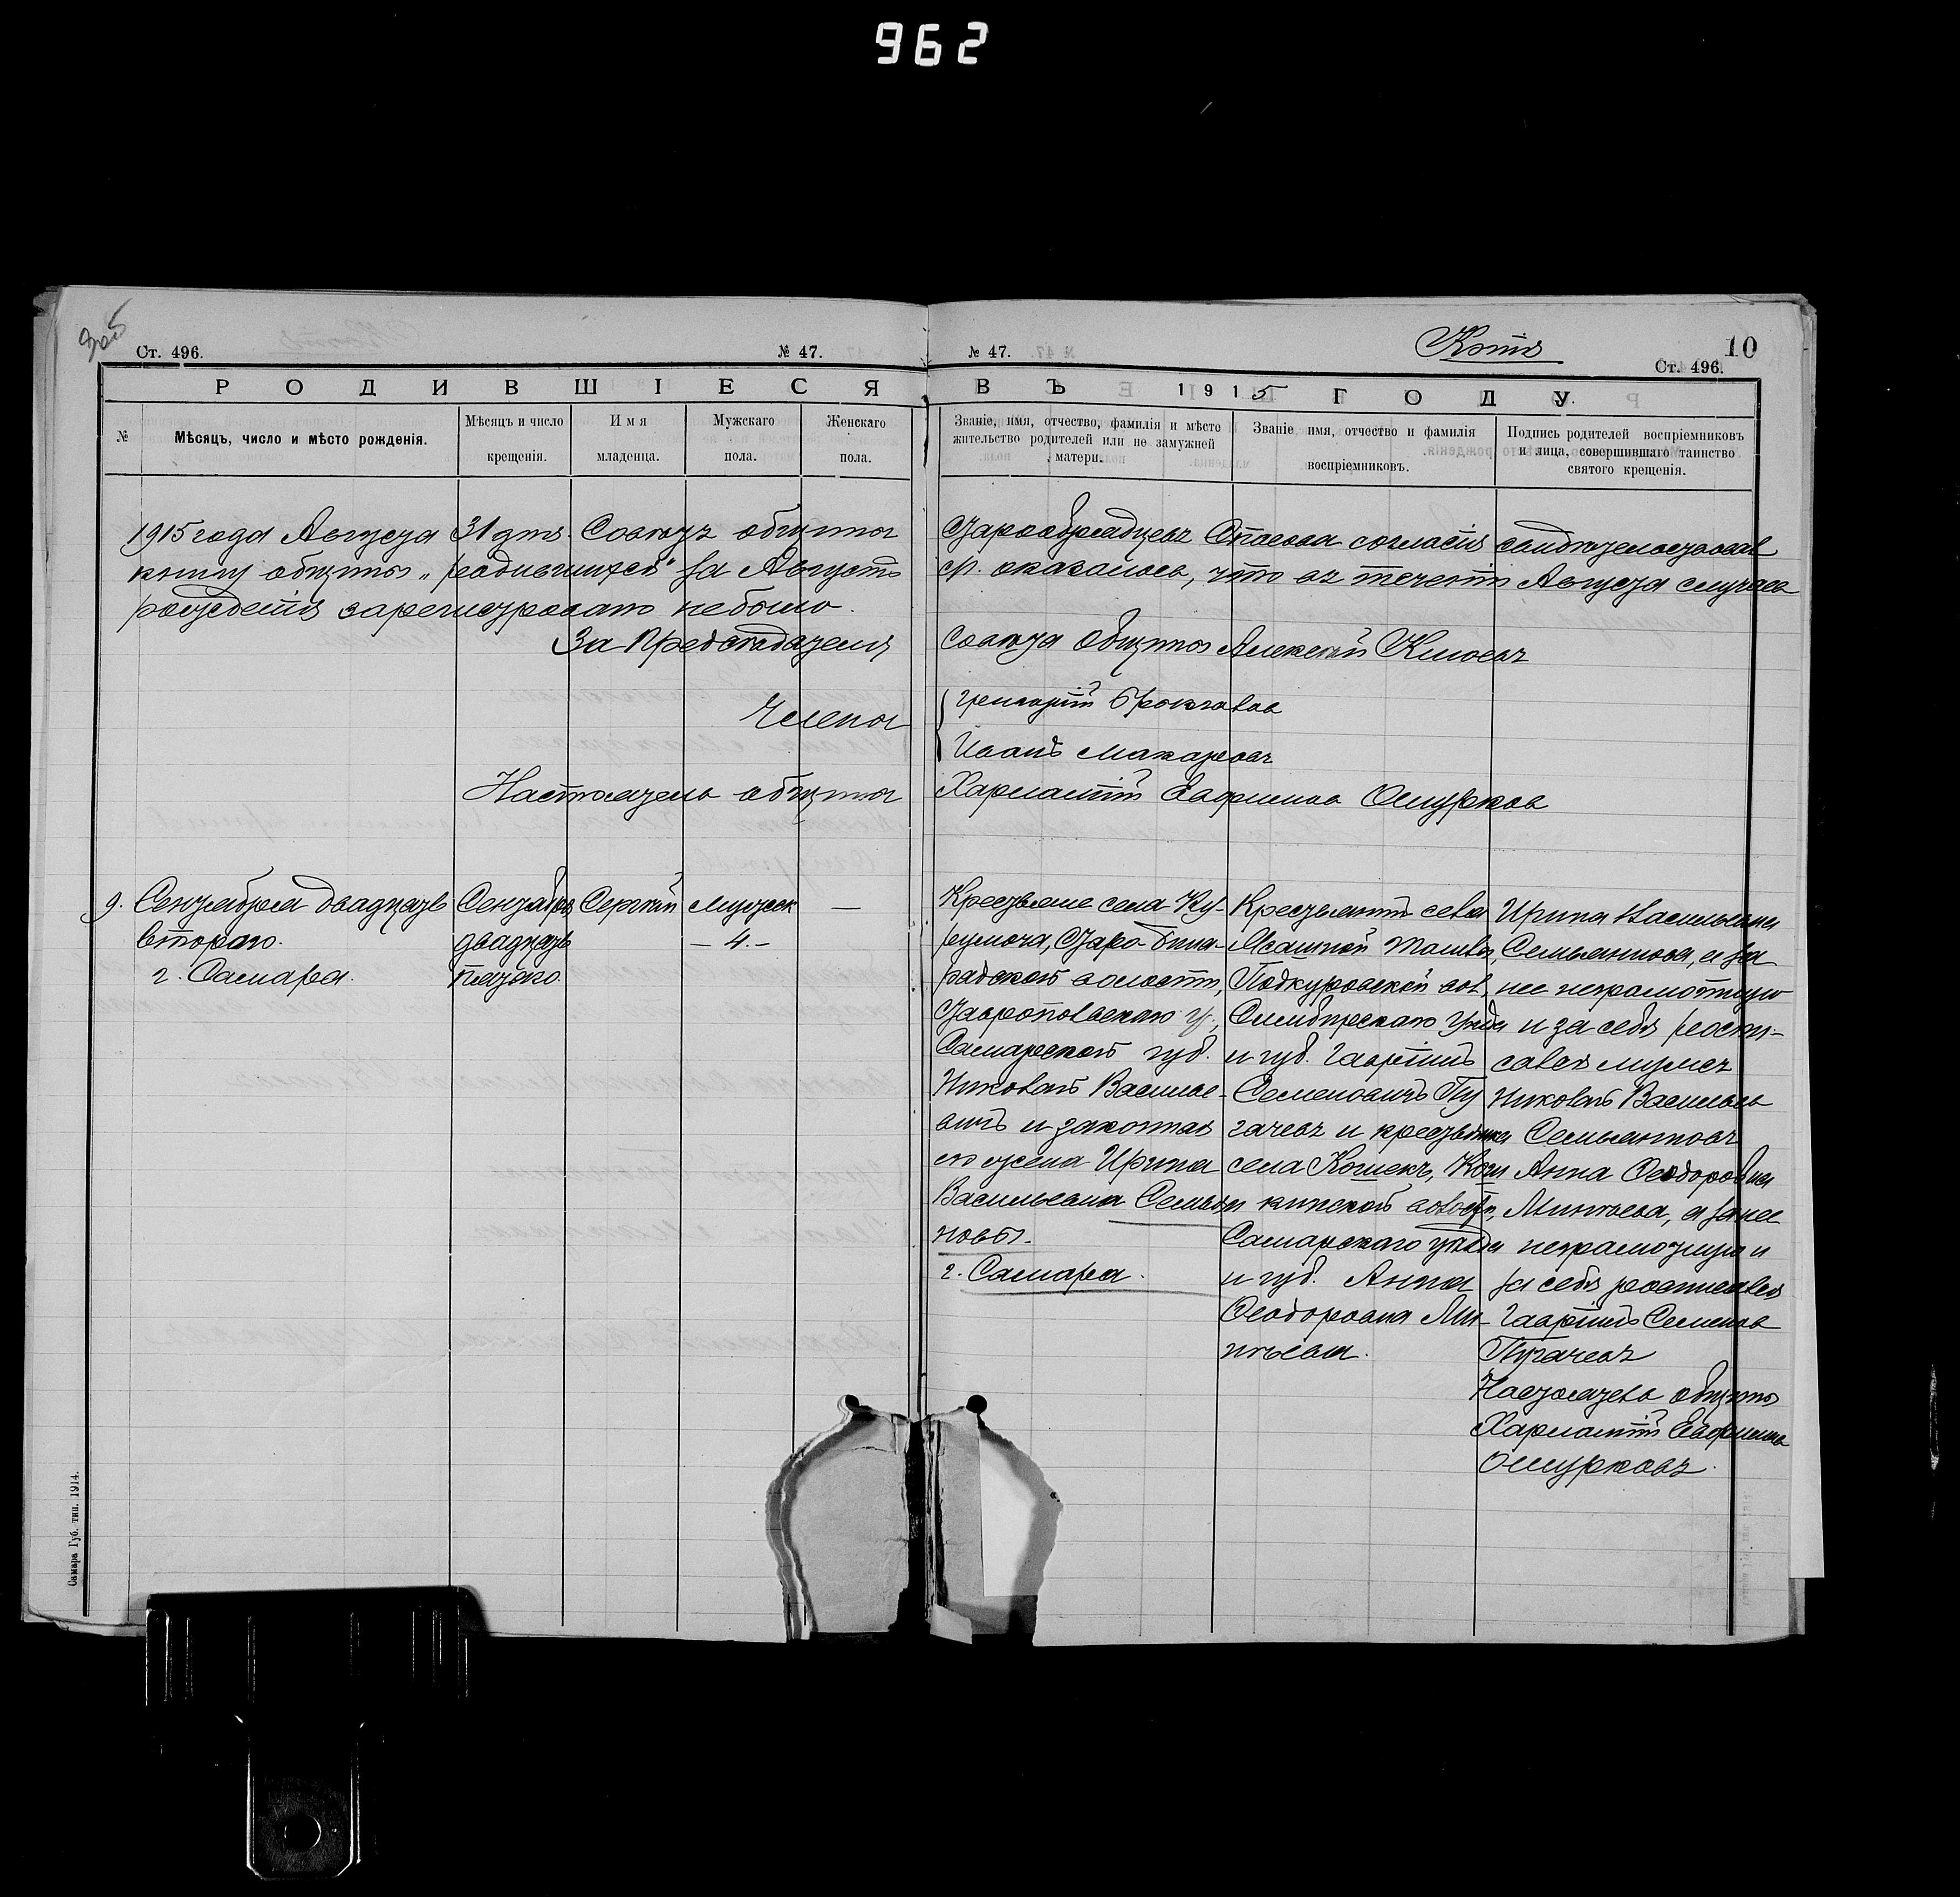 962
Копія
10
Ст. 496.
№ 47.
№ 47.
Ст. 496.
РОДИВШІЕСЯ ВЪ 1915 ГОДУ.
№
Мѣсяцъ, число и мѣсто рожденія.
Мѣсяцъ и число
крещенія.
Имя
младенца.
Мужскаго
пола.
Женскаго
пола.
Званіе, имя, отчество, фамилія и мѣсто
жительство родителей или не замужней
матери.
Званіе имя, отчество и фамилія
воспріемниковъ.
Подпись родителей воспріемниковъ
и лица, совершившаго таинство
святого крещенія.
1915 года Августа 31 дня. Совѣтъ общины Старообрядцевъ Спасова согласія свидѣтельствовав
книгу общины „родившихся" за Августъ ср. оказалось, что въ теченіи Августа случаев
рожденія зарегистровано не было.
За Предсѣдателя Совѣта Общины Алексѣй Клюевъ
Члены
Григорій
Иванъ Макаровъ
Настоятель общины Харлампій Евфимов Ошурков
9.
Сентября двадцать
второго.
г. Самара.
Сентября
двадцать
пятаго.
Сергѣй
мужск
— 4. —
—
Крестьяне села Ку-
румоча, Старо-Бина-
радской волости,
Ставропольскаго у.,
Самарской губ.
Николай Василье-
вичъ и законная
его жена Ирина
Васильевна Семьян
новы.
г. Самара.
Крестьянинъ села
Ташлы,
Подкуровской вол,
Симбирскаго уѣзда
и губ. Гавріилъ
Семеновичъ Пу
гачевъ и крестьянка
села Кошекъ, Кош
кинской волости,
Самарскаго уѣзда
и губ. Анна
Феодоровна Ми-
нѣева.
Ирина Васильевна
Семьяннова, а за
нее неграмотную
и за себя роспи-
сался мужъ
Николай Васильев
Семьянновъ
Анна Феодоровна
Минѣева, а за нее
неграмотную и
за себя росписался
Гавріилъ Семенов
Пугачевъ
Настоятель общины
Харлампій Евфимов
Ошурковъ.
Самара Губ. тип. 1914.